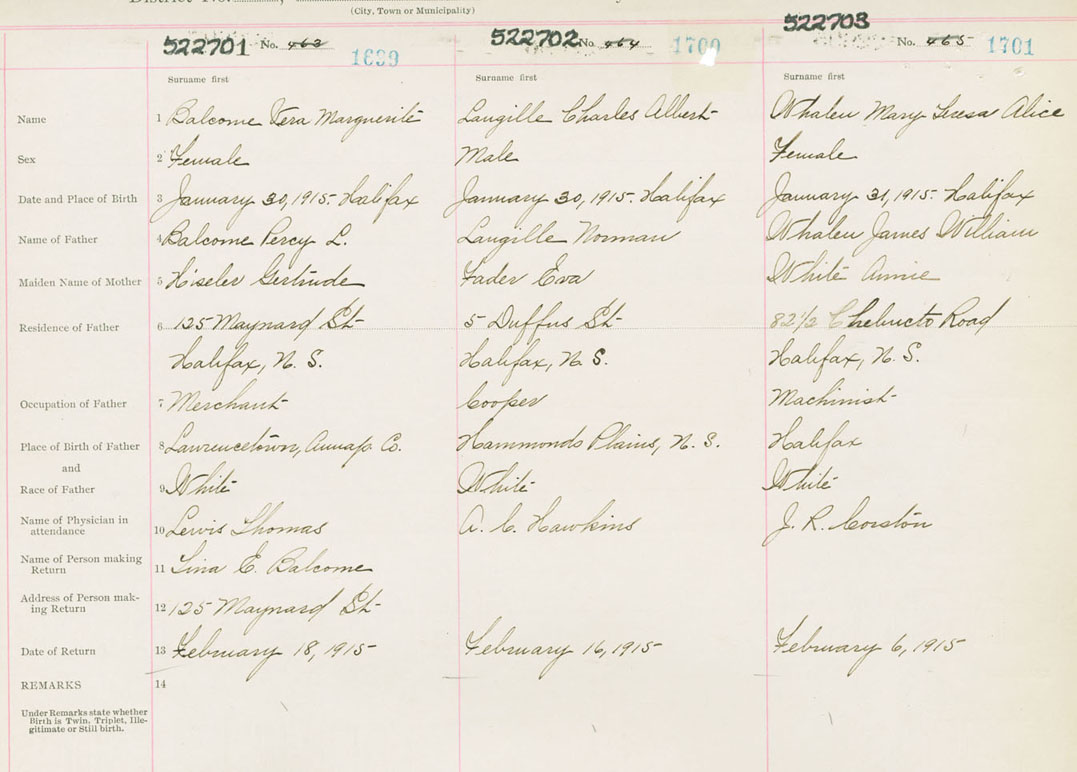 District No.
(City, Town or Municipality)
522701 No. 463 1699
522702 No. 464 1700
522703 No. 465 1701
Surname first Surname first Surname first
Name 1 Balcome Vera Marguerite Langille Charles Albert Whalen Mary Teresa Alice
Sex 2 Female Male Female
Date and Place of Birth 3 January 30, 1915. Halifax January 30, 1915. Halifax January 31, 1915. Halifax
Name of Father 4 Balcome Percy L. Langille Norman Whalen James William
Maiden Name of Mother 5 Hiseler Gertrude Fader Eva White Annie
Residence of Father 6 125 Maynard St 5 Duffus St 82 1/2 Chebucto Road
Halifax, N. S. Halifax, N. S. Halifax, N. S.
Occupation of Father 7 Merchant Cooper Machinist
Place of Birth of Father 8 Lawrencetown, Annap. Co. Hammonds Plains, N. S. Halifax
and
Race of Father 9 White White White
Name of Physician in
attendance 10 Lewis Thomas A. C. Hawkins J. R. Corston
Name of Person making
Return 11 Lina E. Balcome
Address of Person mak-
ing Return 12 125 Maynard St
Date of Return 13 February 18, 1915 February 16, 1915 February 6, 1915
REMARKS 14
Under Remarks state whether
Birth is Twin, Triplet, Ille-
gitimate or Still birth.